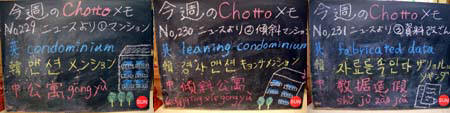 今週のChottoメモ
No,229 ニュースより①マンション
英 condominium
韓 맨션 メンション
中 公寓 gōng yù
今週のChottoメモ
No,230 ニュースより②傾斜マンション
英 leaning condominium
韓 경사맨션 キョンサメンション
中 傾斜公寓
qīng xié gōng yù
今週のChottoメモ
No,231 ニュースより③資料
英 fabricated data
韓 자료를속인다
中 数据造假
shù jù zào jiǎ